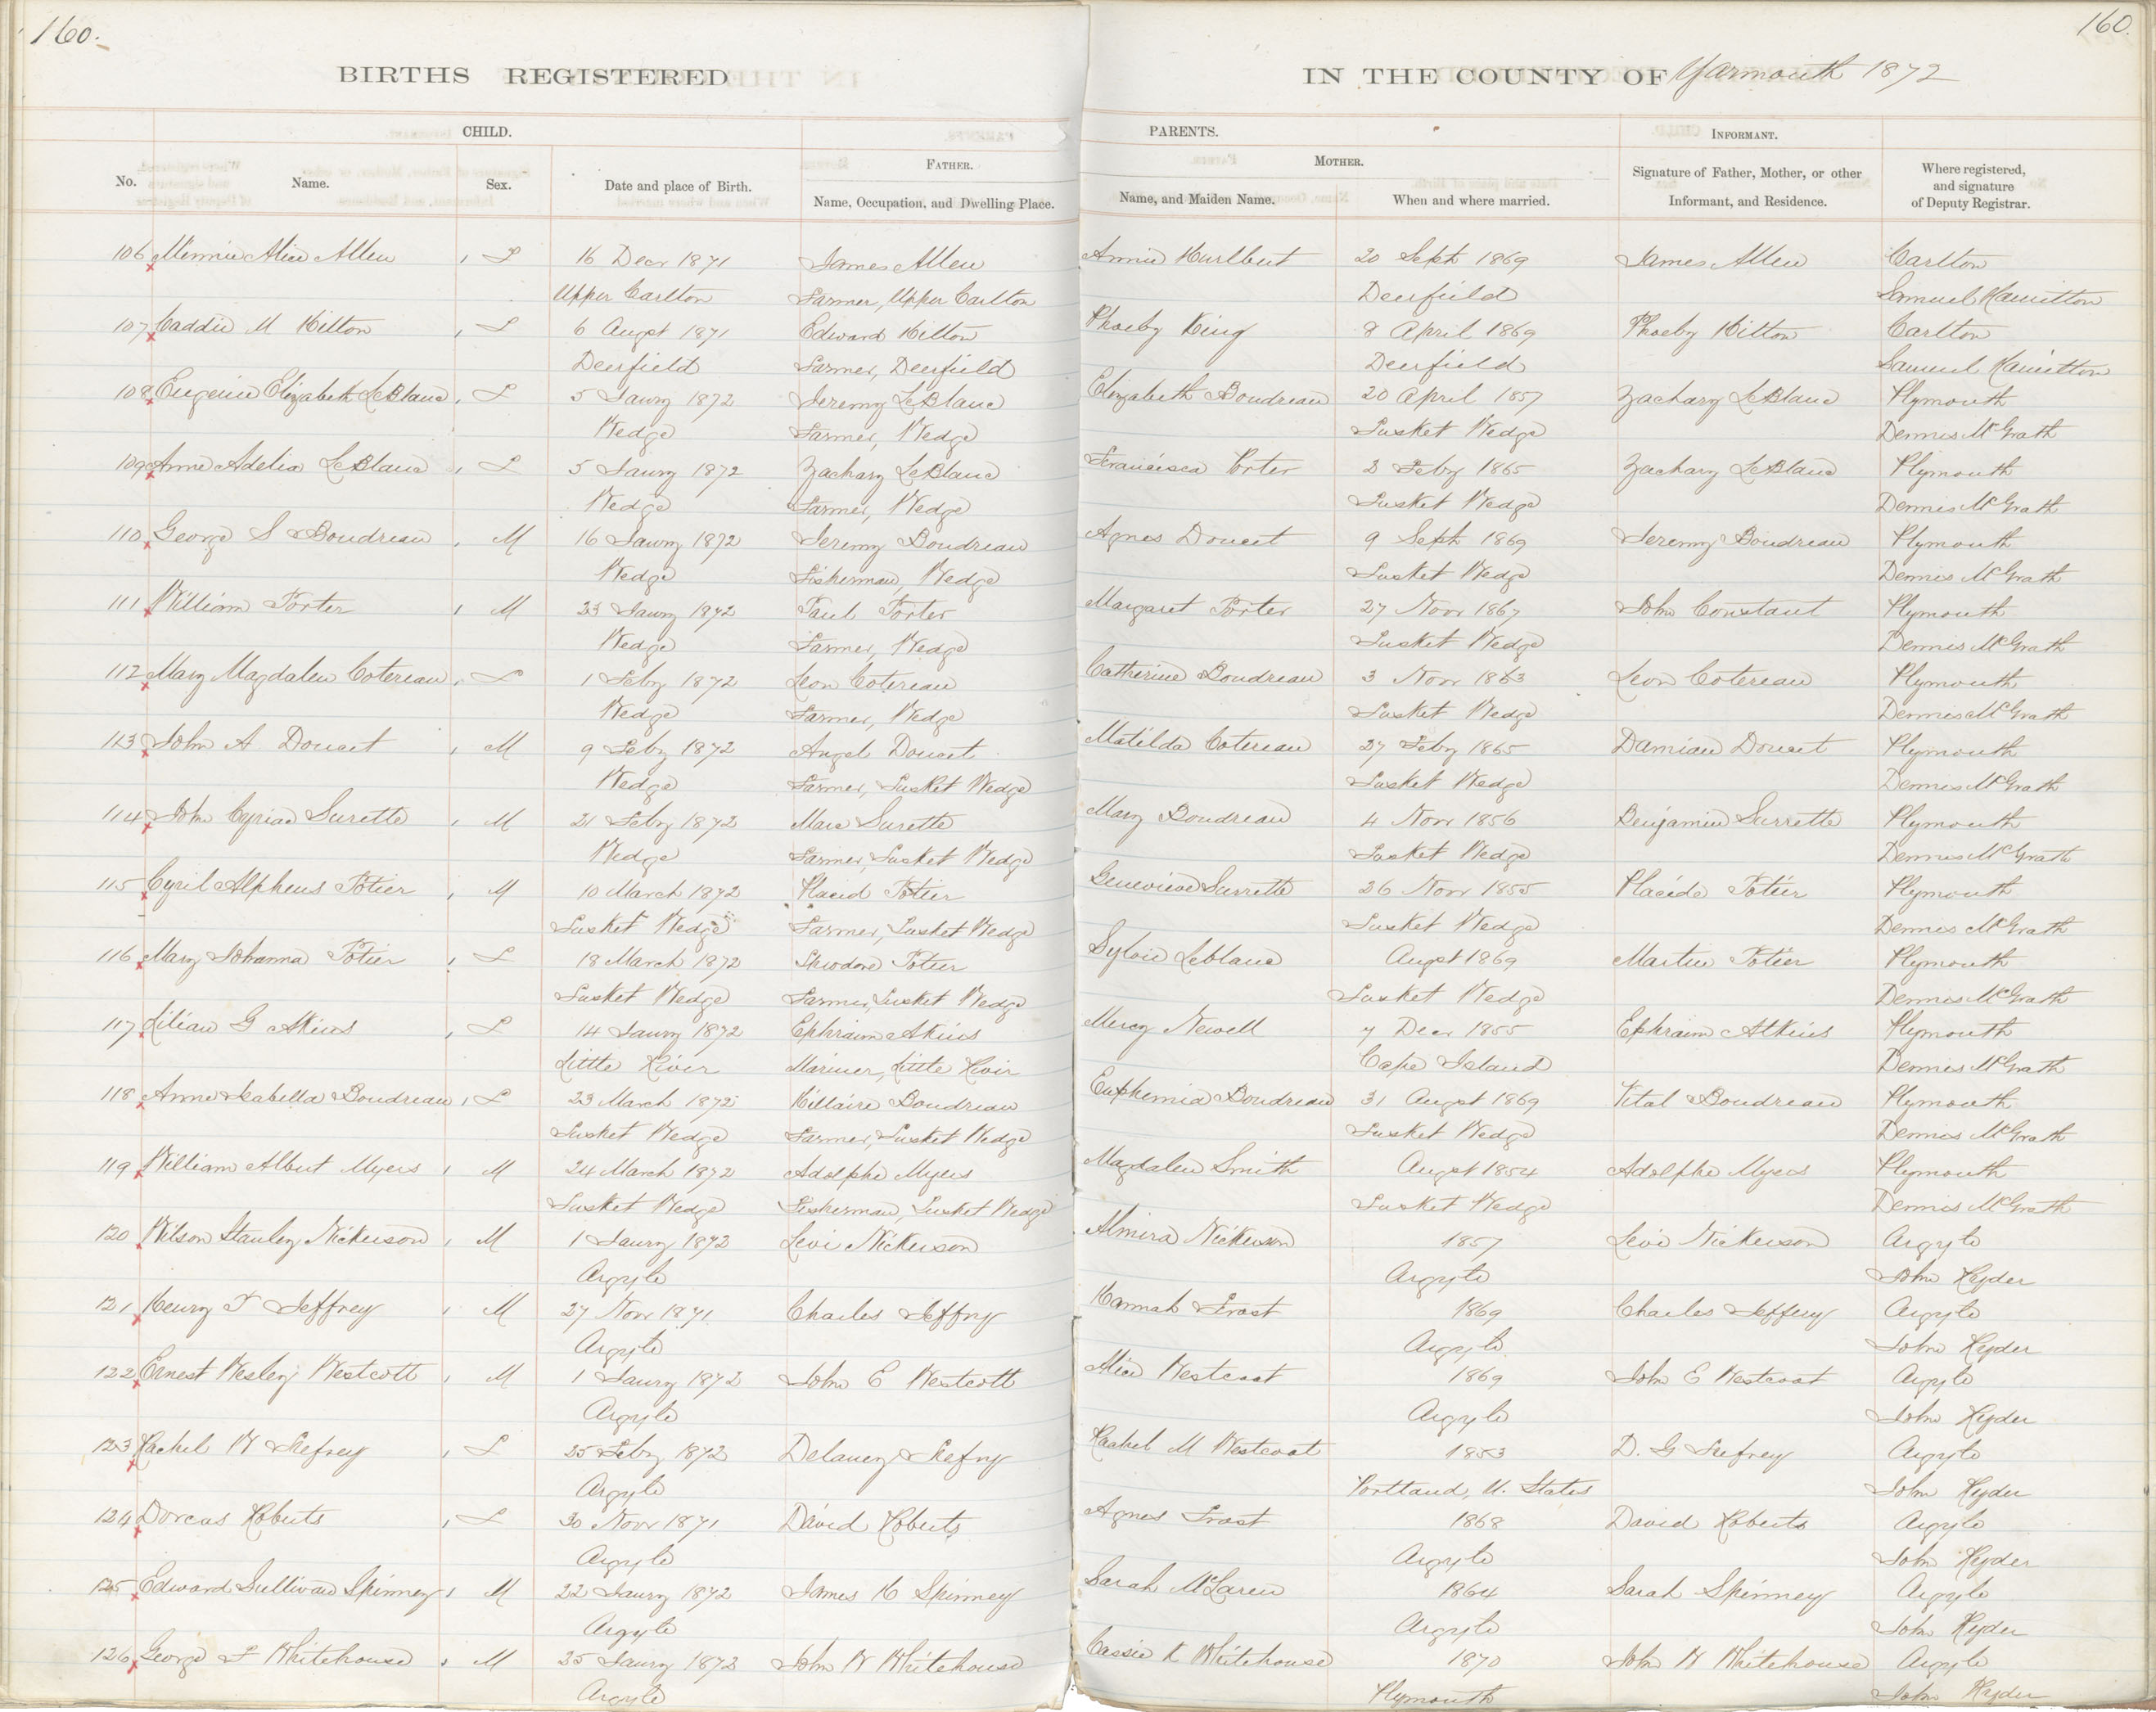 160.
160.
BIRTHS REGISTERED
IN THE COUNTY OF Yarmouth 1872
CHILD.
PARENTS.
INFORMANT.
FATHER.
MOTHER.
No.
Name.
Sex.
Date and place of Birth.
Name, Occupation, and Dwelling Place.
Name, and Maiden Name.
When and where married.
Signature of Father, Mother, or other
Informant, and Residence.
Where registered,
and signature
of Deputy Registrar.
106 Minnie Alice Allen F 16 Decr 1871 James Allen Annie Hurlbut 20 Sept 1869 James Allen Carlton
Upper Carlton Farmer, Upper Carlton Deerfield Samuel Hamilton
107 Caddie M Hilton F 6 Augst 1871 Edward Hilton Phoeby King 8 April 1869 Phoeby Hilton Carlton
Deerfield Farmer, Deerfield Deerfield Samuel Hamilton
108 Eugenie Elizabeth LeBlanc F 5 Janry 1872 Jeremy LeBlanc Elizabeth Boudreau 20 April 1857 Zachary LeBlanc Plymouth
Wedge Farmer, Wedge Tusket Wedge Dennis McGrath
109 Anne Adelia LeBlanc F 5 Janry 1872 Zachary LeBlanc Francisca Porter 2 Feby 1865 Zachary LeBlanc Plymouth
Wedge Farmer, Wedge Tusket Wedge Dennis McGrath
110 George S Boudreau M 16 Janry 1872 Jeremy Boudreau Agnes Doucet 9 Sept 1869 Jeremy Boudreau Plymouth
Wedge Fisherman, Wedge Tusket Wedge Dennis McGrath
111 William Porter M 23 Janry 1872 Paul Porter Margaret Porter 27 Novr 1867 John Constant Plymouth
Wedge Farmer, Wedge Tusket Wedge Dennis McGrath
112 Mary Magdalen Cotereau F 1 Feby 1872 Leon Cotereau Catherine Boudreau 3 Novr 1863 Leon Cotereau Plymouth
Wedge Farmer, Wedge Tusket Wedge Dennis McGrath
113 John A. Doucet M 9 Feby 1872 Angel Doucet Matilda Cotereau 27 Feby 1865 Damian Doucet Plymouth
Wedge Farmer, Tusket Wedge Tusket Wedge Dennis McGrath
114 John Cyriac Surette M 21 Feby 1872 Marc Surette Mary Boudreau 4 Novr 1856 Benjamin Surrette Plymouth
Wedge Farmer, Tusket Wedge Tusket Wedge Dennis McGrath
115 Cyril Alpheus Potier M 10 March 1872 Placid Potier Genevieve Surrette 26 Novr 1855 Placide Potier Plymouth
Tusket Wedge Farmer, Tusket Wedge Tusket Wedge Dennis McGrath
116 Mary Johanna Potier F 18 March 1872 Theodore Potier Sylvie Leblanc Augst 1869 Martin Potier Plymouth
Tusket Wedge Farmer, Tusket Wedge Tusket Wedge Dennis McGrath
117 Lilian G Atkins F 14 Janry 1872 Ephraim Atkins Mercy Newell 7 Decr 1855 Ephraim Atkins Plymouth
Little River Mariner, Little River Cape Island Dennis McGrath
118 Anne Isabella Boudreau F 23 March 1872 Hillaire Boudreau Euphemia Boudreau 31 Augst 1869 Vital Boudreau Plymouth
Tusket Wedge Farmer, Tusket Wedge Tusket Wedge Dennis McGrath
119 William Albert Myers M 24 March 1872 Adolphe Myers Magdalen Smith Augst 1854 Adolphe Myers Plymouth
Tusket Wedge Fisherman, Tusket Wedge Tusket Wedge Dennis McGrath
120 Wilson Stanley Nickerson M 1 Janry 1872 Levi Nickerson Almira Nickerson 1857 Levi Nickerson Argyle
Argyle Argyle John Ryder
121 Henry T Jeffrey M 27 Novr 1871 Charles Jeffry Hannah Frost 1869 Charles Jeffery Argyle
Argyle Argyle John Ryder
122 Ernest Wesley Westcott M 1 Janry 1872 John E Westcott Alice Westcoat 1869 John E Westcoat Argyle
Argyle Argyle John Ryder
123 Rachel W F 25 Feby 1872 Delaney Rachel M Westcoat 1853 D. G Argyle
Argyle Portland, U. States John Ryder
124 Dorcas Roberts F 30 Novr 1871 David Roberts Agnes Frost 1868 David Roberts Argyle
Argyle Argyle John Ryder
125 Edward Sullivan Spinney M 22 Janry 1872 James H Spinney Sarah McLaren 1864 Sarah Spinney Argyle
Argyle Argyle John Ryder
126 George F Whitehouse M 25 Janry 1872 John W Whitehouse Cassie K Whitehouse 1870 John W Whitehouse Argyle
Argyle Plymouth John Ryder